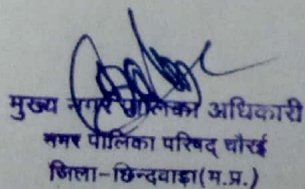 मुख्य नगर पालिका अधिकारी
नगर पालिका परिषद् चौरई
जिला-छिन्दवाड़ा (म.प्र.)